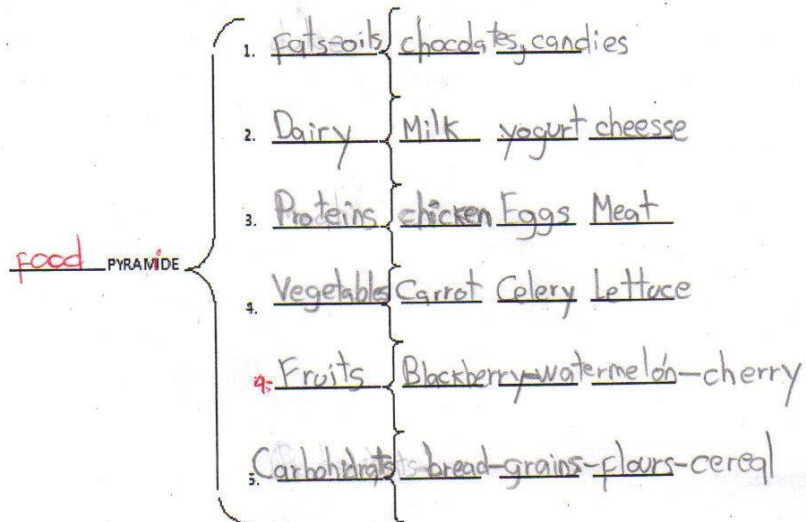 1. Fats-oils chocolates, candies
2. Dairy Milk yogurt cheesse
3. Proteins chicken Eggs Meat
food PYRAMiDE
4. Vegetables Carrot Celery Lettuce
4. Fruits Blackberry-watermelón-cherry
5. Carbohidrats-bread-grains-flours-cereal